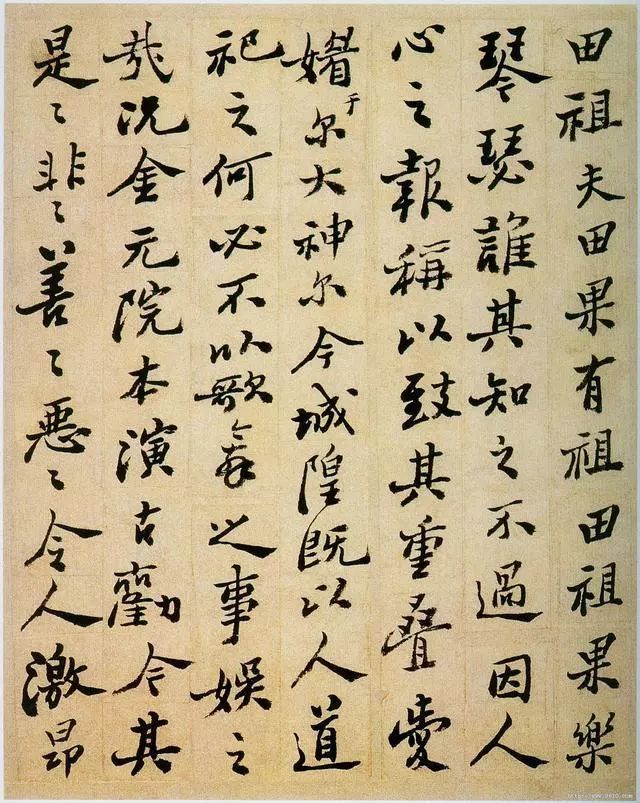 田祖夫田果有祖田祖果樂
琴瑟誰其知之不過因人
心之報稱以致其重疊愛
媚于尔大神尔今城隍既以人道
祀之何必不以歌舞之事娱之
哉况金元院本演古勸今其
是〻非〻善〻惡〻令人激昂